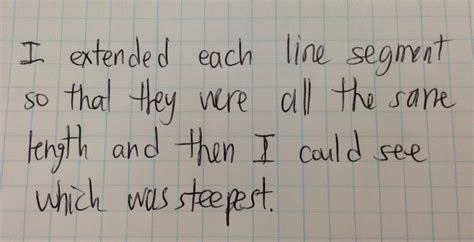 I extended each line segment
so that they were all the same
length and then I could see
which was steepest.